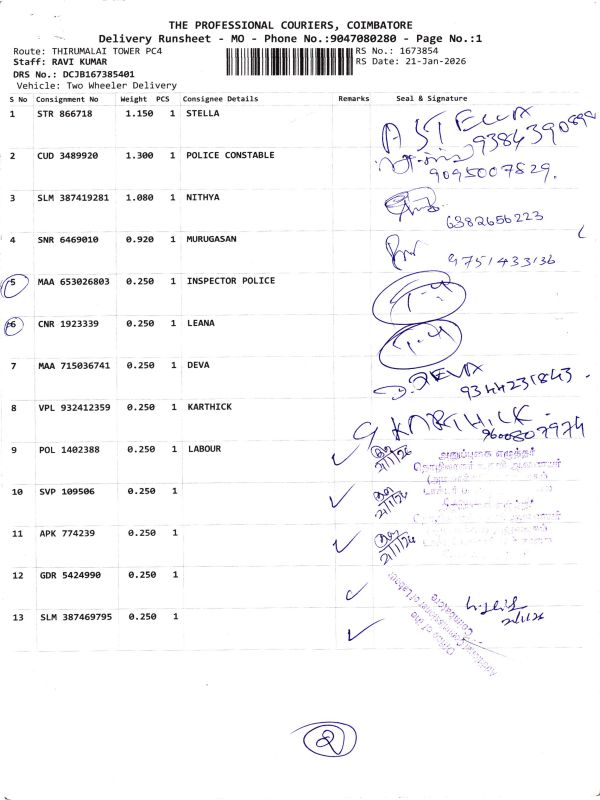 THE PROFESSIONAL COURIERS, COIMBATORE
Delivery Runsheet - MO - Phone No.:9047080280 - Page No.:1
Route: THIRUMALAI TOWER PC4
RS No.: 1673854
Staff: RAVI KUMAR
RS Date: 21-Jan-2026
DRS No.: DCJB167385401
Vehicle: Two Wheeler Delivery
S No Consignment No Weight PCS Consignee Details Remarks Seal & Signature
1 STR 866718 1.150 1 STELLA A STELLA
2 CUD 3489920 1.300 1 POLICE CONSTABLE 9095007829.
3 SLM 387419281 1.080 1 NITHYA 6382656223
4 SNR 6469010 0.920 1 MURUGASAN 9751433136
5 MAA 653026803 0.250 1 INSPECTOR POLICE T-4
6 CNR 1923339 0.250 1 LEANA T-4
7 MAA 715036741 0.250 1 DEVA D. DEVA 9344231843.
8 VPL 932412359 0.250 1 KARTHICK G KARTHICK. 9600807974
9 POL 1402388 0.250 1 LABOUR 21/1/26
அனுப்புகை எழுத்தர்
10 SVP 109506 0.250 1 21/1/26
11 APK 774239 0.250 1 21/1/26
12 GDR 5424990 0.250 1
13 SLM 387469795 0.250 1 21/1/26
Office of the
Commissioner of Labour
Coimbatore
2